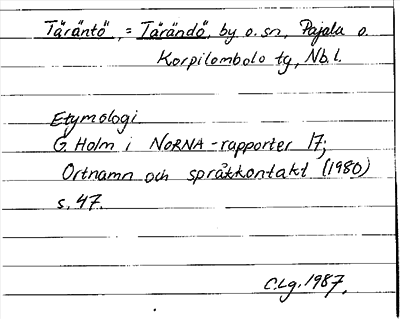 Täräntö, = Tärändö, by o. sn, Pajala o.
Korpilombolo tg, Nb. l.
Etymologi
G Holm i NORNA-rapporter 17;
Ortnamn och språkkontakt (1980)
s. 47.
C.Lg. 1987.